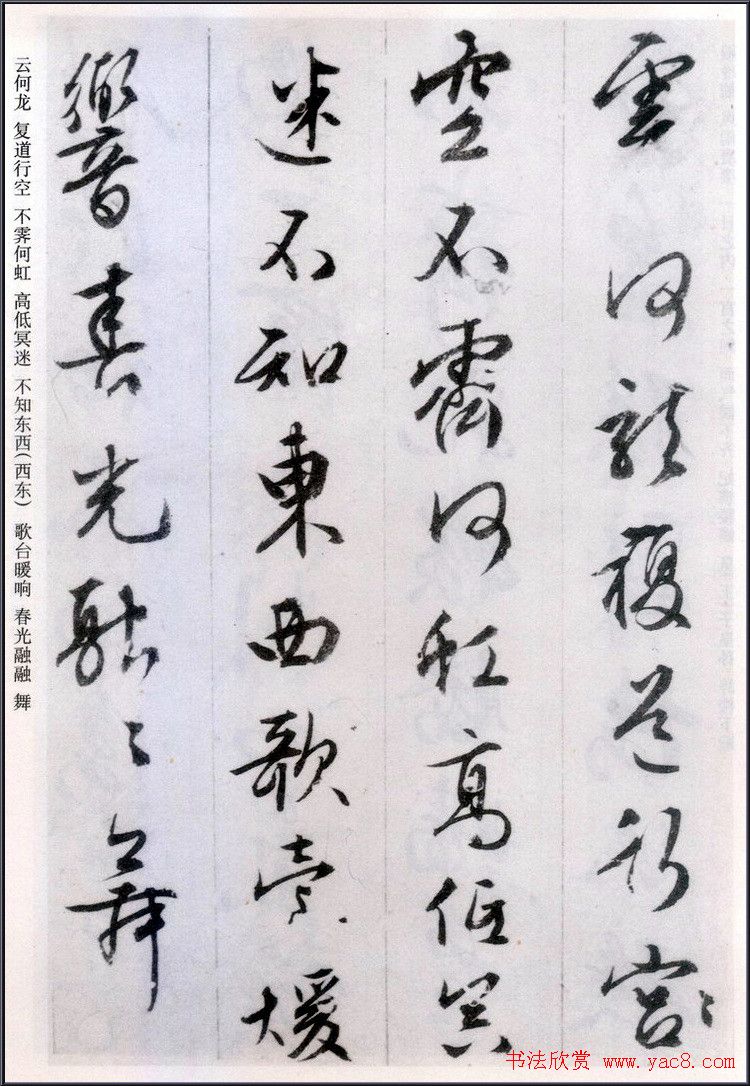 雲何龍複道行宫
空不霽何虹高低冥
迷不知東西歌臺暖
響春光融々舞
云何龙 复道行空 不霁何虹 高低冥迷 不知东西(西东) 歌台暖响 春光融融 舞
书法欣赏 www.yac8.com